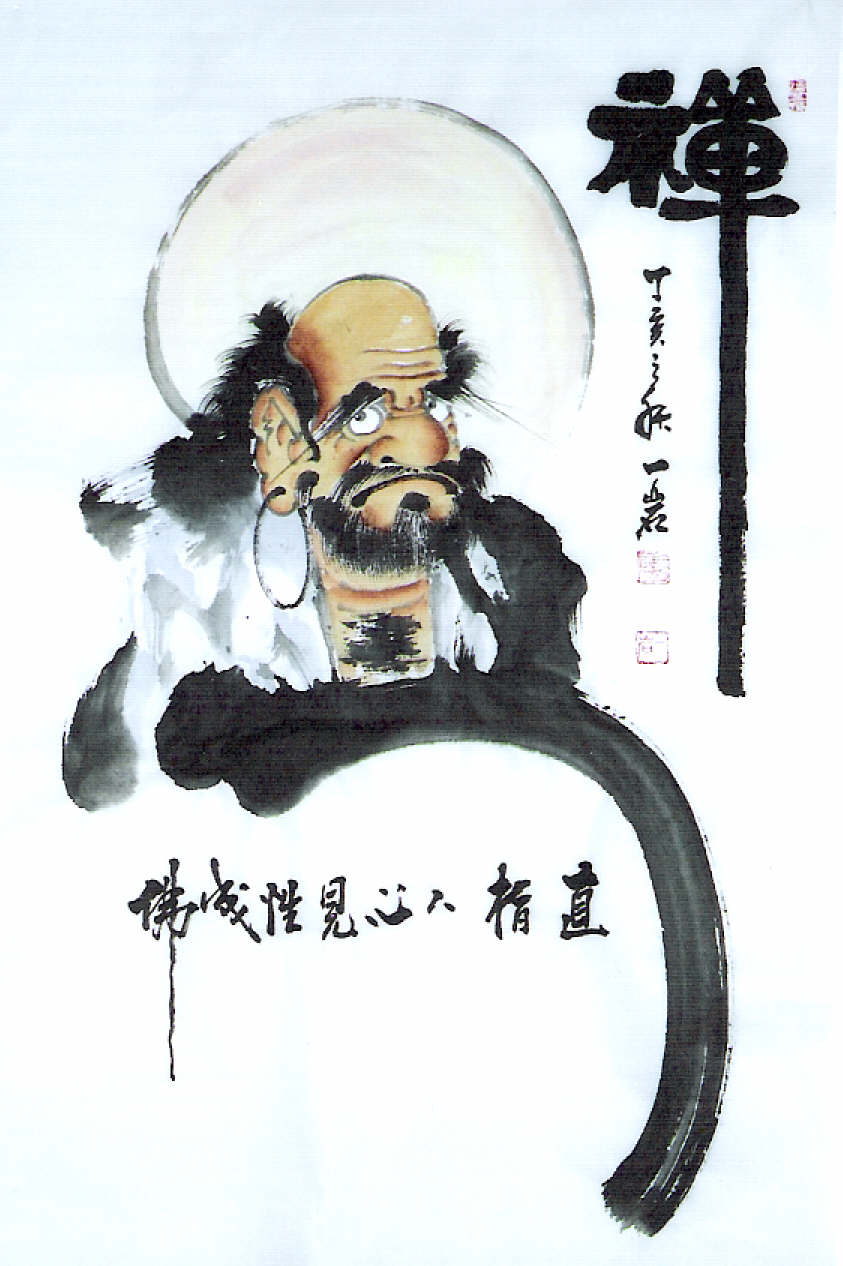 禪
丁亥之秋 一岩
直指人心見性成佛